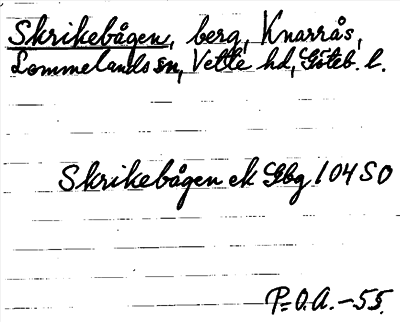 Skrikebågen, berg, Knarrås,
Lommelands sn, Vette hd, Göteb. l.
Skrikebågen ek Gbg 104 SO
P=O.A. -55.